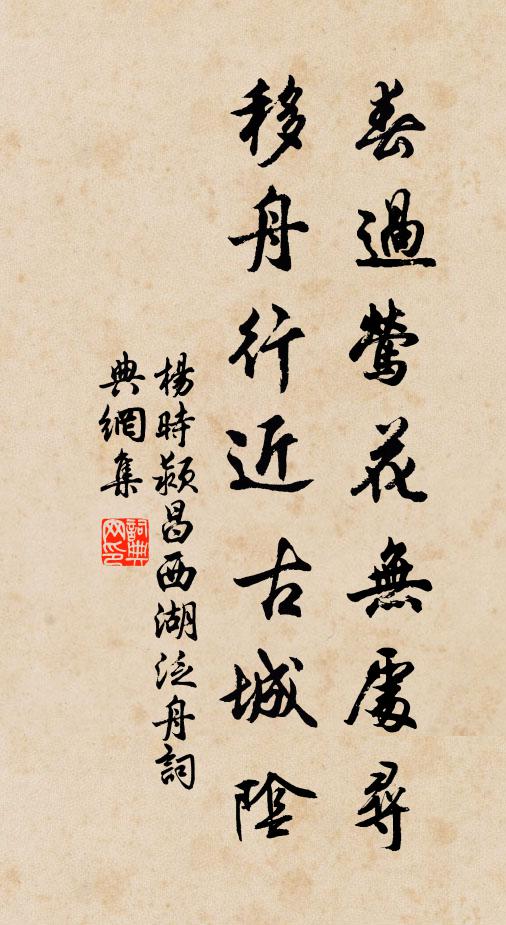 春過鶯花無處尋
移舟行近古城陰
楊時潁昌西湖泛舟詞
典網集
詞典网印